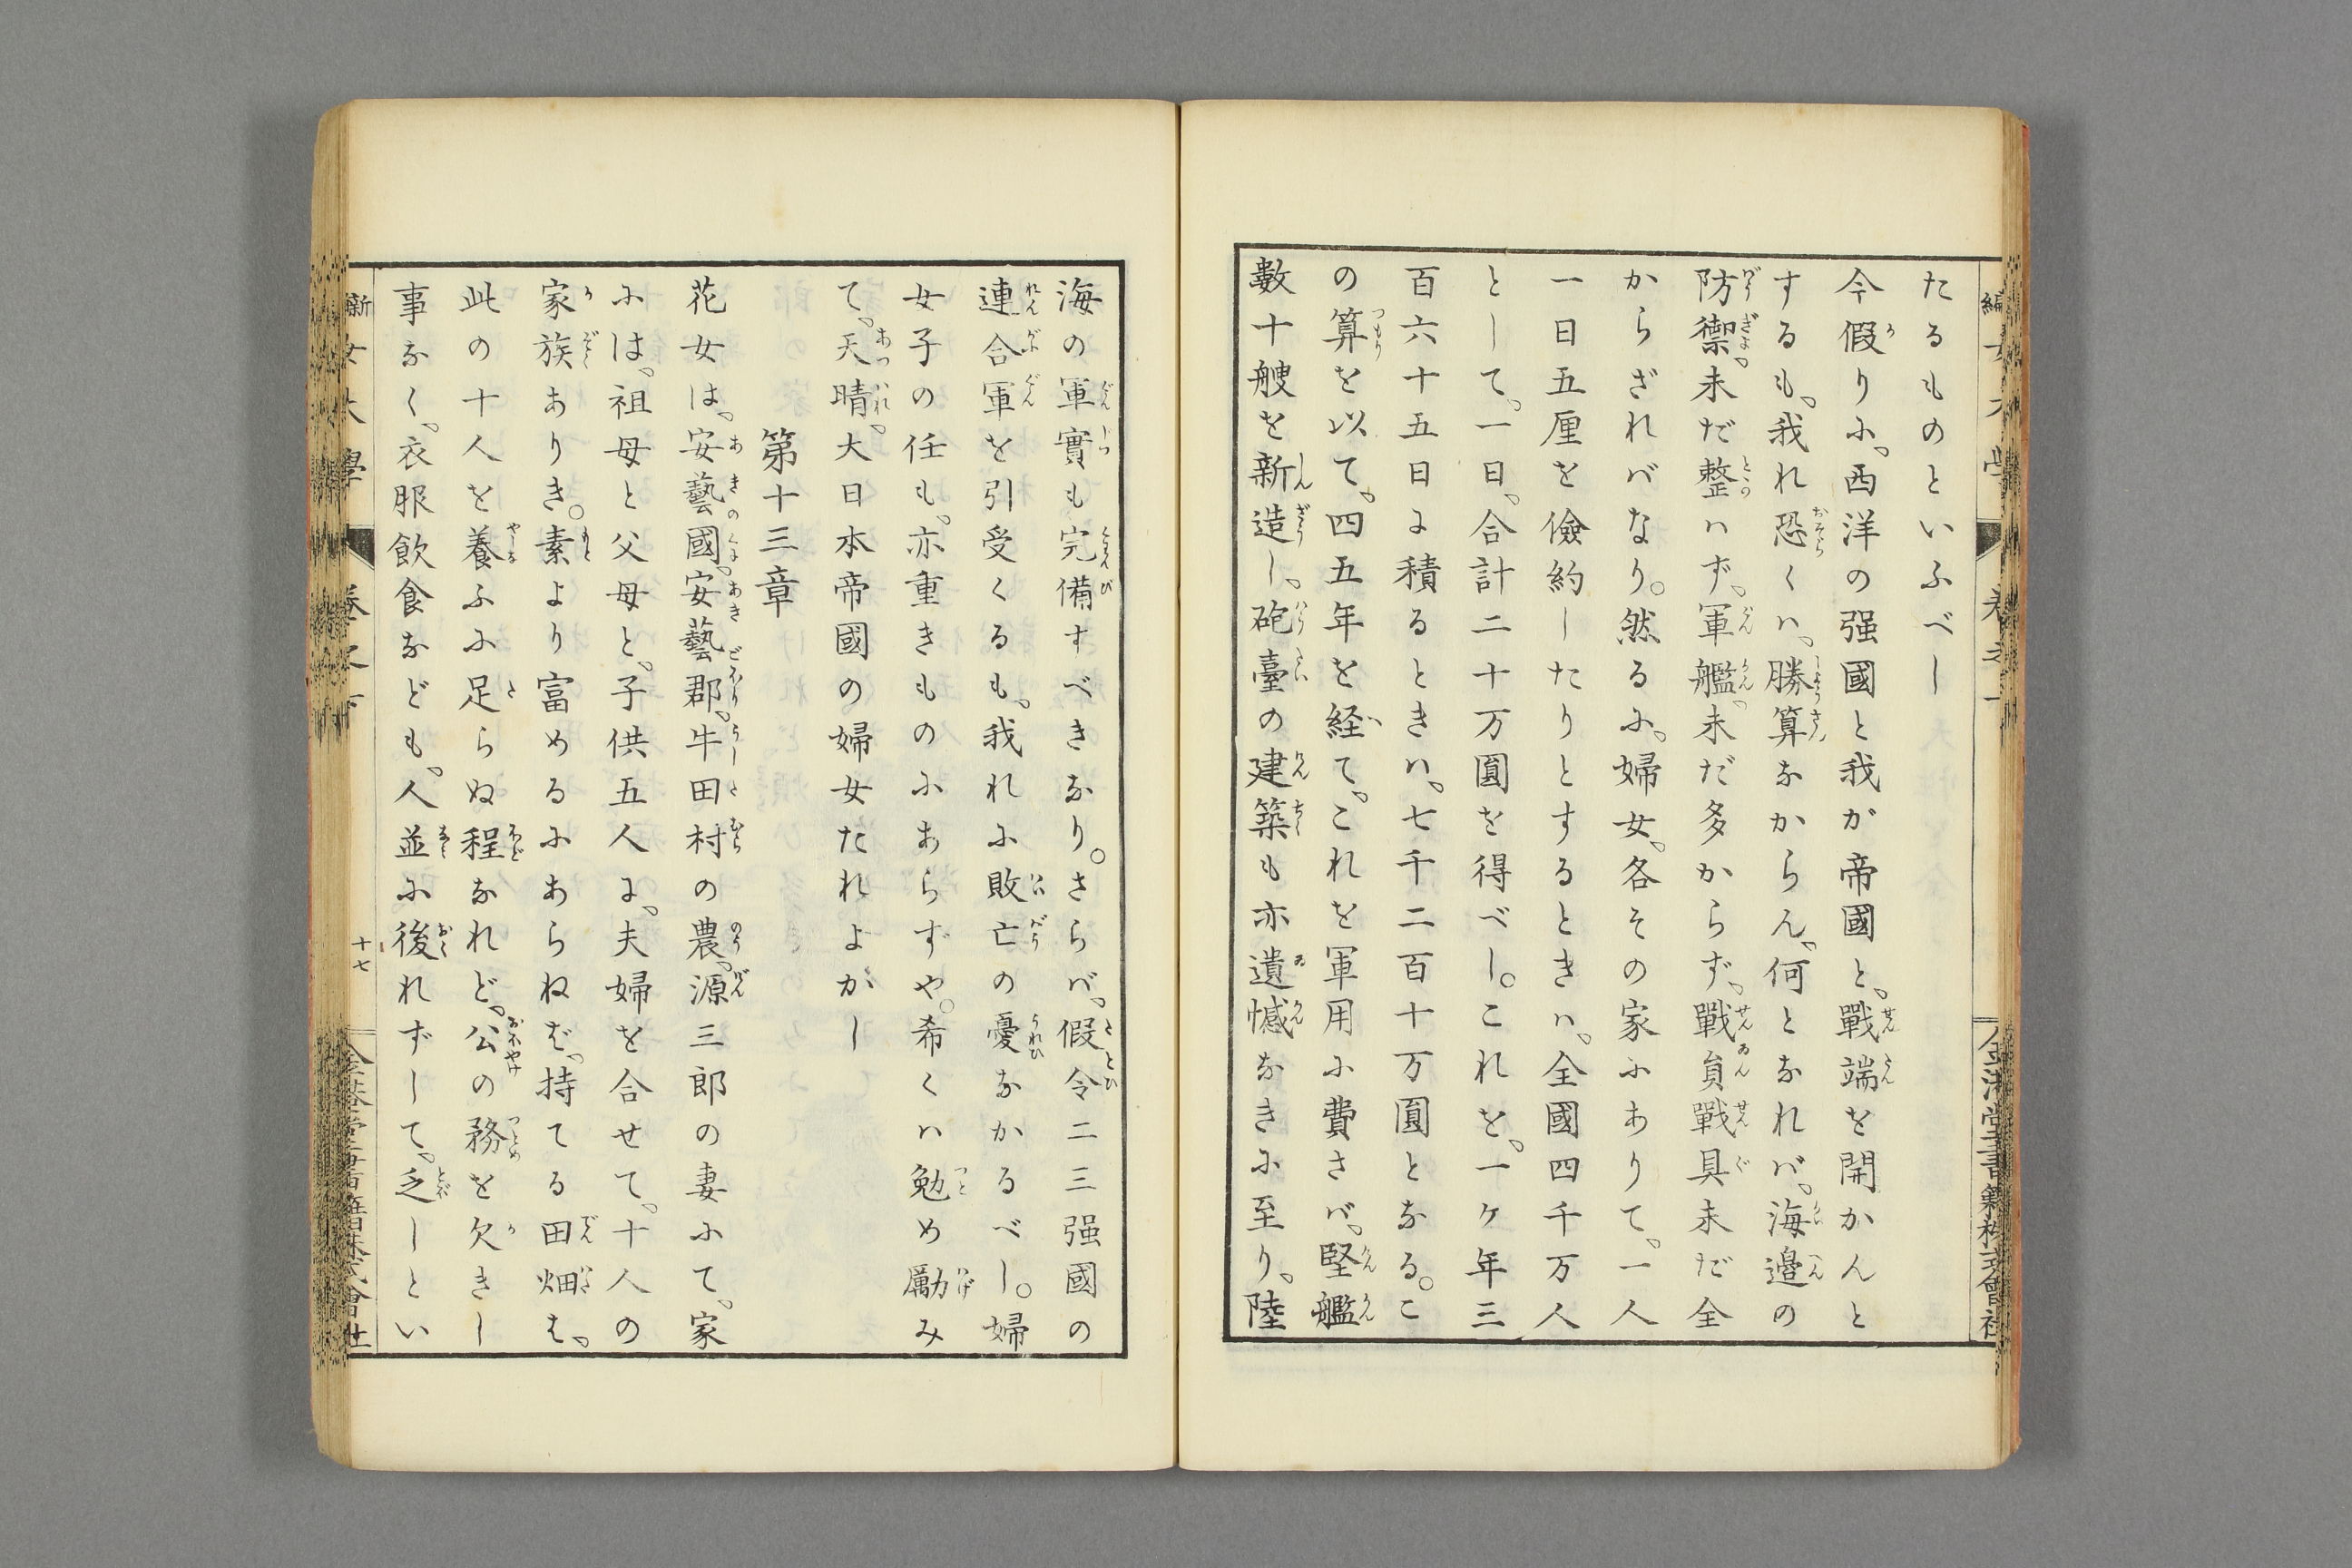 たるものといふべし
今假りに、西洋の强國と我が帝國と、戰端を開かんと
するも、我れ恐くハ、勝算なからん、何となれバ、海邉の
防禦、未だ整ハず、軍艦、未だ多からず、戰員戰具未だ全
からざれバなり。然るに、婦女、各その家にありて、一人
一日五厘を儉約したりとするときハ、全國四千万人
として、一日、合計二十万圓を得べし。これを、一ケ年三
百六十五日に積るときハ、七千二百十万圓となる。こ
の算を以て、四五年を経て、これを軍用に費さバ、堅艦
數十艘を新造し、砲臺の建築も亦遺憾なきに至り、陸
海の軍實も完備すべきなり。さらバ、假令二三强國の
連合軍を引受くるも、我れに敗亡の憂なかるべし。婦
女子の任も、亦重きものにあらずや。希くハ勉め勵み
て、天晴、大日本帝國の婦女たれよかし
第十三章
花女は、安藝國、安藝郡、牛田村の農、源三郎の妻にて、家
には、祖母と父母と、子供五人に、夫婦を合せて、十人の
家族ありき。素より富めるにあらねば、持てる田畑は、
此の十人を養ふに足らぬ程なれど、公の務を欠きし
事なく、衣服飮食なども、人並に後れずして、乏しとい
十七